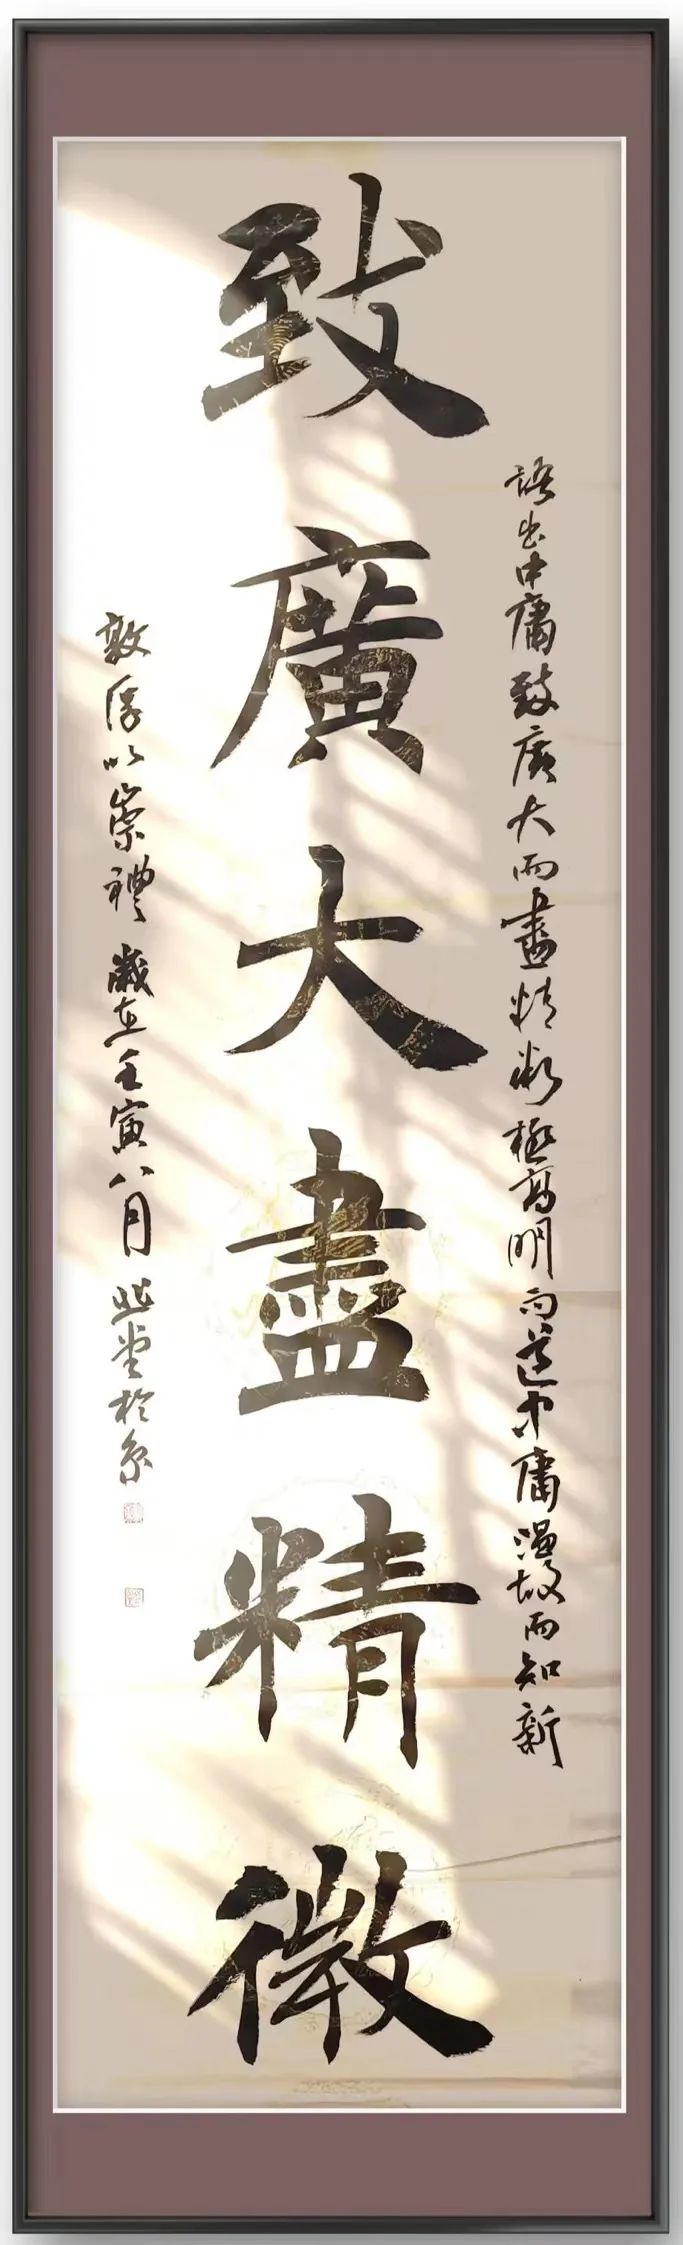 致廣大盡精微
語出中庸致廣大而盡精微極高明而道中庸溫故而知新
敦厚以崇禮歲在壬寅八月堂於京